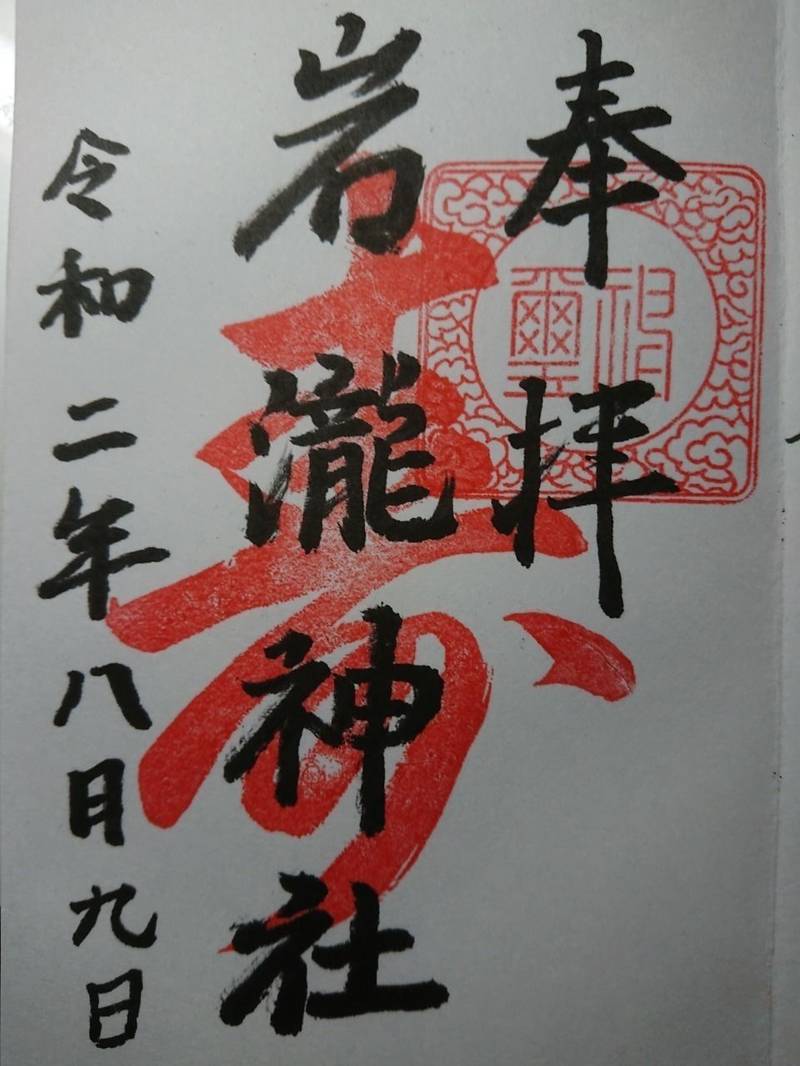 奉拝
岩瀧神社
令和二年八月九日
寿